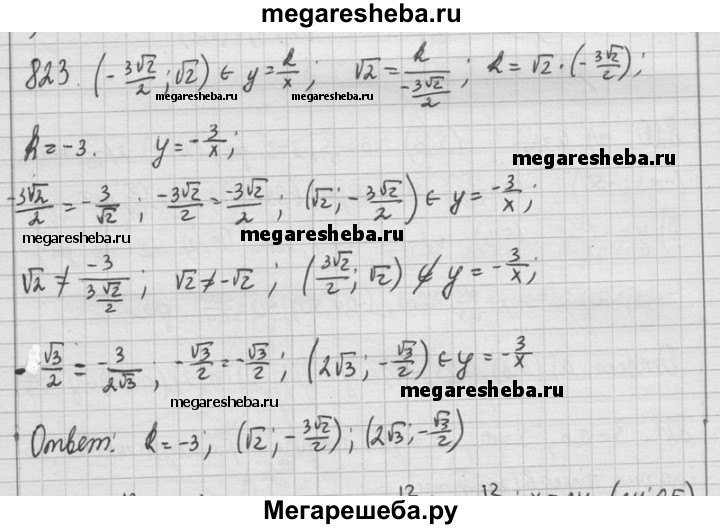 megaresheba.ru
823. (-3√2/2; √2) ∈ y = k/x; √2 = k/(-3√2/2); k = √2 · (-3√2/2);
megaresheba.ru megaresheba.ru
k = -3. y = -3/x;
megaresheba.ru
-3√2/2 = -3/√2; -3√2/2 = -3√2/2; (√2; -3√2/2) ∈ y = -3/x;
megaresheba.ru megaresheba.ru
√2 ≠ -3/(3√2/2); √2 ≠ -√2; (3√2/2; √2) ∉ y = -3/x;
-√3/2 = -3/2√3; -√3/2 = -√3/2; (2√3; -√3/2) ∈ y = -3/x
megaresheba.ru megaresheba.ru
Ответ: k = -3; (√2; -3√2/2); (2√3; -√3/2)
Мегарешеба.ру